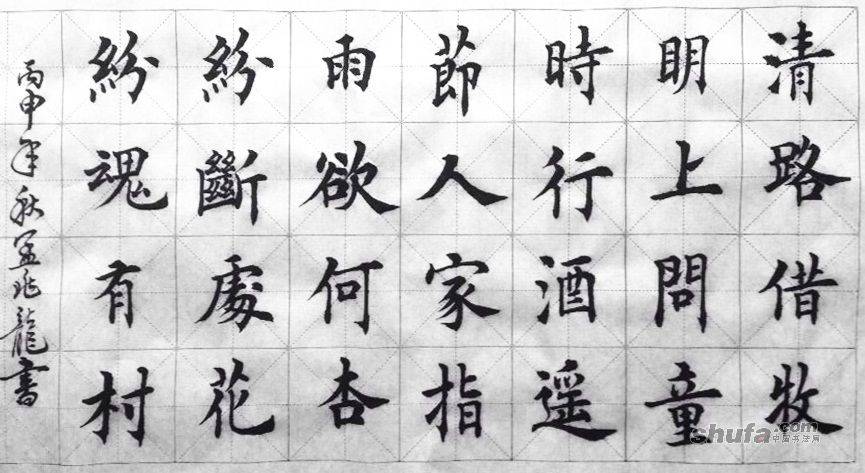 清明時節雨紛紛
路上行人欲斷魂
借問酒家何處有
牧童遥指杏花村
丙申年秋兆龍書
shufa.com
中国书法网